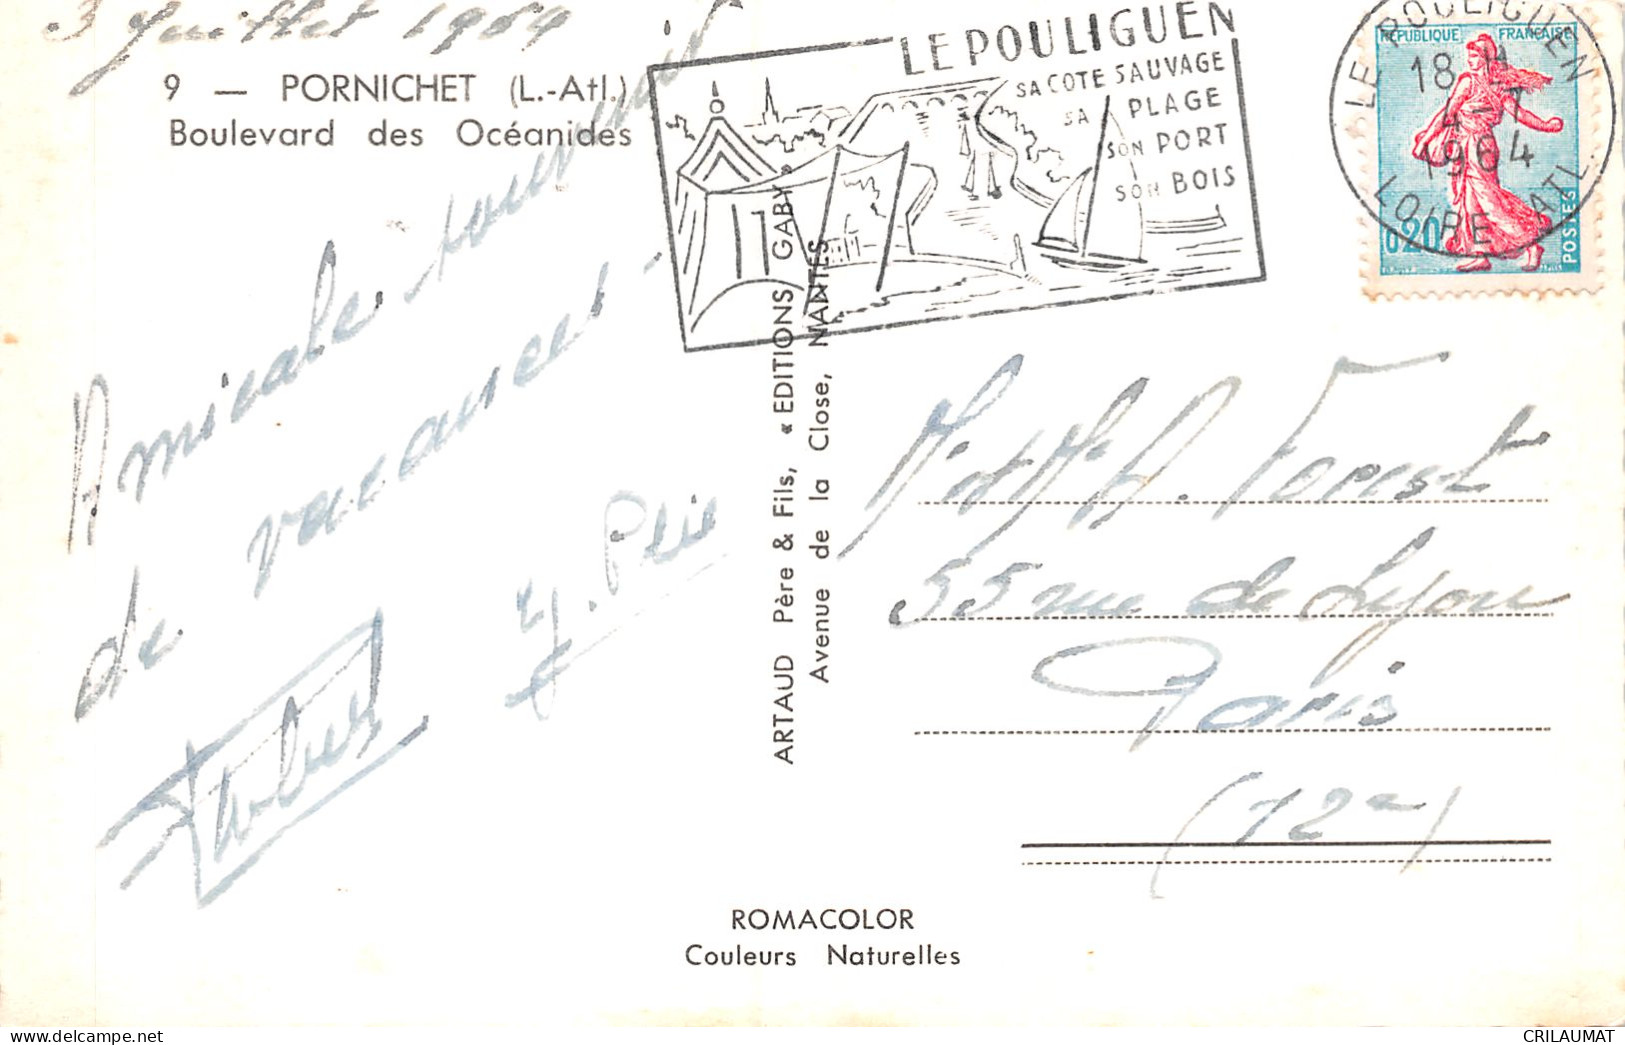 3 Juillet 1964
9 — PORNICHET (L.-Atl.)
Boulevard des Océanides
Amicale souvenir
de vacances
LE POULIGUEN
SA COTE SAUVAGE
SA PLAGE
SON PORT
SON BOIS
LE POULIGUEN
18 H
4 -7
1964
LOIRE ATL.
REPUBLIQUE FRANÇAISE
0,20
POSTES
ARTAUD Père & Fils, « EDITIONS GABY »
Avenue de la Close, NANTES
Forest
55 rue de Lyon
Paris
(12e)
ROMACOLOR
Couleurs Naturelles
www.delcampe.net
CRILAUMAT